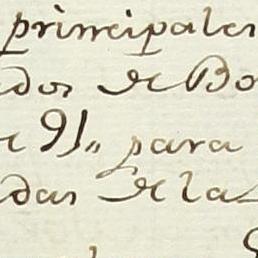 principales
dos de Bo
e 91,, para
das de la